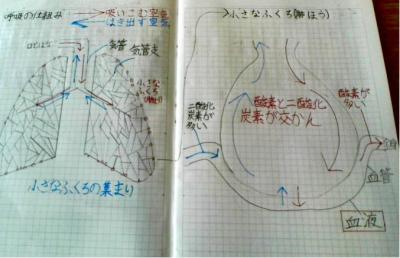 呼吸の仕組み
吸いこむ空気
はき出す空気
口とはな
気管
気管支
小さな
ふくろ
(肺ほう)
小さなふくろの集まり
小さなふくろ(肺ほう)
二酸化
炭素が
多い
酸素と二酸化
炭素が交かん
酸素が
多い
血管
血液